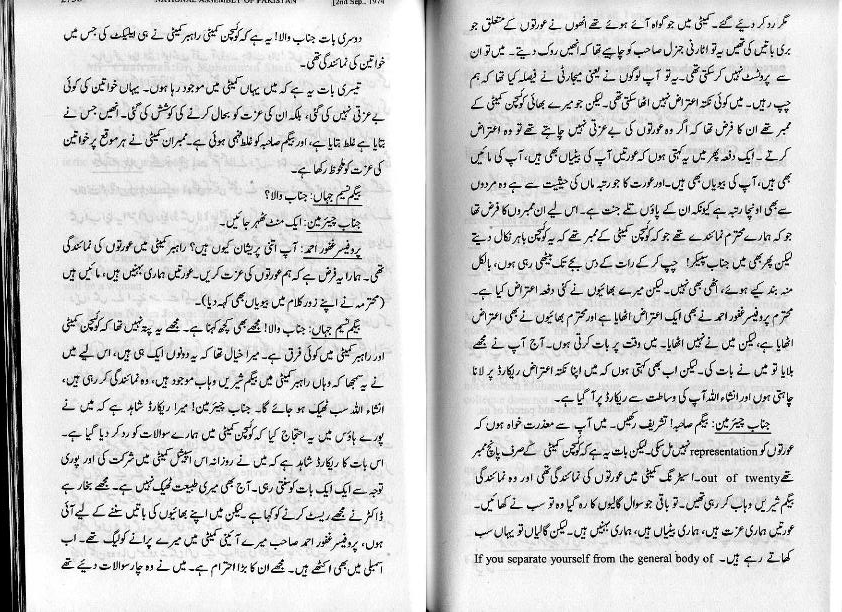 2756 NATIONAL ASSEMBLY OF PAKISTAN [2nd Sep., 1974
دوسری بات جناب والا! یہ ہے کہ کوئسچن کمیٹی راہبر کمیٹی نے ہی ایلیکٹ کی جس میں
خواتین کی نمائندگی تھی۔
تیسری بات یہ ہے کہ میں یہاں کمیٹی میں موجود رہا ہوں۔ یہاں خواتین کی کوئی
بے عزتی نہیں کی گئی، بلکہ ان کی عزت کو بحال کرنے کی کوشش کی گئی۔ انھیں جس نے
بتایا ہے غلط بتایا ہے، اور بیگم صاحبہ کو غلط فہمی ہوئی ہے۔ ممبران کمیٹی نے ہر موقع پر خواتین
کی عزت کو ملحوظ رکھا ہے۔
بیگم نسیم جہاں: جناب والا؟
جناب چیئرمین: ایک منٹ ٹھہر جائیں۔
پروفیسر غفور احمد: آپ اتنی پریشان کیوں ہیں؟ راہبر کمیٹی میں عورتوں کی نمائندگی
تھی۔ ہمارا یہ فرض ہے کہ ہم عورتوں کی عزت کریں۔ عورتیں ہماری بہنیں ہیں، مائیں ہیں
(محترمہ نے اپنے زور کلام میں بیویاں بھی کہہ دیا)۔
بیگم نسیم جہاں: جناب والا! مجھے بھی کچھ کہنا ہے۔ مجھے یہ پتہ نہیں تھا کہ کوئسچن کمیٹی
اور راہبر کمیٹی میں کوئی فرق ہے۔ میرا خیال تھا کہ یہ دونوں ایک ہی ہیں، اس لیے میں
نے یہ سمجھا کہ وہاں راہبر کمیٹی میں بیگم شیریں وہاب موجود ہیں، وہ نمائندگی کر رہی ہیں،
انشاء اللہ سب ٹھیک ہو جائے گا۔ جناب چیئرمین! میرا ریکارڈ شاہد ہے کہ میں نے
پورے ہاؤس میں یہ احتجاج کیا کہ کوئسچن کمیٹی میں ہمارے سوالات کو رد کر دیا گیا ہے۔
اس بات کا ریکارڈ شاہد ہے کہ میں نے روزانہ اس اسپیشل کمیٹی میں شرکت کی اور پوری
توجہ سے ایک ایک بات کو سنتی رہی۔ آج بھی میری طبیعت ٹھیک نہیں ہے۔ مجھے بخار ہے
ڈاکٹر نے مجھے ریسٹ کرنے کو کہا ہے۔ لیکن میں اپنے بھائیوں کی باتیں سننے کے لیے آئی
ہوں، پروفیسر غفور احمد صاحب میرے آئینی کمیٹی میں میرے پرانے کولیگ تھے۔ اب
اسمبلی میں بھی اکٹھے ہیں۔ مجھے ان کا بڑا احترام ہے۔ میں نے وہ چار سوالات دیئے تھے
مگر رد کر دیئے گئے۔ کمیٹی میں جو گواہ آئے ہوئے تھے انھوں نے عورتوں کے متعلق جو
بری باتیں کی تھیں یہ تو اٹارنی جنرل صاحب کو چاہیے تھا کہ انھیں روک دیتے۔ میں تو ان
سے پروٹسٹ نہیں کر سکتی تھی۔ یہ تو آپ لوگوں نے یعنی میجارٹی نے فیصلہ کیا تھا کہ ہم
چپ رہیں۔ میں کوئی نکتہ اعتراض نہیں اٹھا سکتی تھی۔ لیکن جو میرے بھائی کوئسچن کمیٹی کے
ممبر تھے ان کا فرض تھا کہ اگر وہ عورتوں کی بے عزتی نہیں چاہتے تھے تو وہ اعتراض
کرتے۔ ایک دفعہ پھر میں یہ کہتی ہوں کہ عورتیں آپ کی بیٹیاں بھی ہیں، آپ کی مائیں
بھی ہیں، آپ کی بیویاں بھی ہیں۔ اور عورت کا جو رتبہ ماں کی حیثیت سے ہے وہ مردوں
سے بھی اونچا رتبہ ہے کیونکہ ان کے پاؤں تلے جنت ہے۔ اس لیے ان ممبروں کا فرض تھا
جو کہ ہمارے محترم نمائندے تھے جو کہ کوئسچن کمیٹی کے ممبر تھے کہ یہ کوئسچن باہر نکال دیتے
لیکن پھر بھی میں جناب سپیکر! چپ کر کے رات کے دس بجے تک بیٹھی رہی ہوں، بالکل
منہ بند کیے ہوئے، اٹھی بھی نہیں۔ لیکن میرے بھائیوں نے کئی دفعہ اعتراض کیا ہے۔
محترم پروفیسر غفور احمد نے بھی ایک اعتراض اٹھایا ہے اور محترم بھائیوں نے بھی اعتراض
اٹھایا ہے، لیکن میں نے نہیں اٹھایا۔ میں وقت پر بات کرتی ہوں۔ آج آپ نے مجھے
بلایا تو میں نے بات کی۔ لیکن اب بھی کہتی ہوں کہ میں اپنا نکتہ اعتراض ریکارڈ پر لانا
چاہتی ہوں اور انشاء اللہ آپ کی وساطت سے ریکارڈ پر آ گیا ہے۔
جناب چیئرمین: بیگم صاحبہ! تشریف رکھیں۔ میں آپ سے معذرت خواہ ہوں کہ
عورتوں کو representation نہیں مل سکی۔ لیکن بات یہ ہے کہ کوئسچن کمیٹی کے صرف پانچ ممبر
تھے out of twenty۔ اسیئرنگ کمیٹی میں عورتوں کی نمائندگی تھی اور وہ نمائندگی
بیگم شیریں وہاب کر رہی تھیں۔ تو باقی جو سوال گالیوں کا رہ گیا وہ تو سب نے کھائیں۔
عورتیں ہماری عزت ہیں، ہماری بیٹیاں ہیں، ہماری بہنیں ہیں۔ لیکن گالیاں تو یہاں سب
کھاتے رہے ہیں۔ If you separate yourself from the general body of